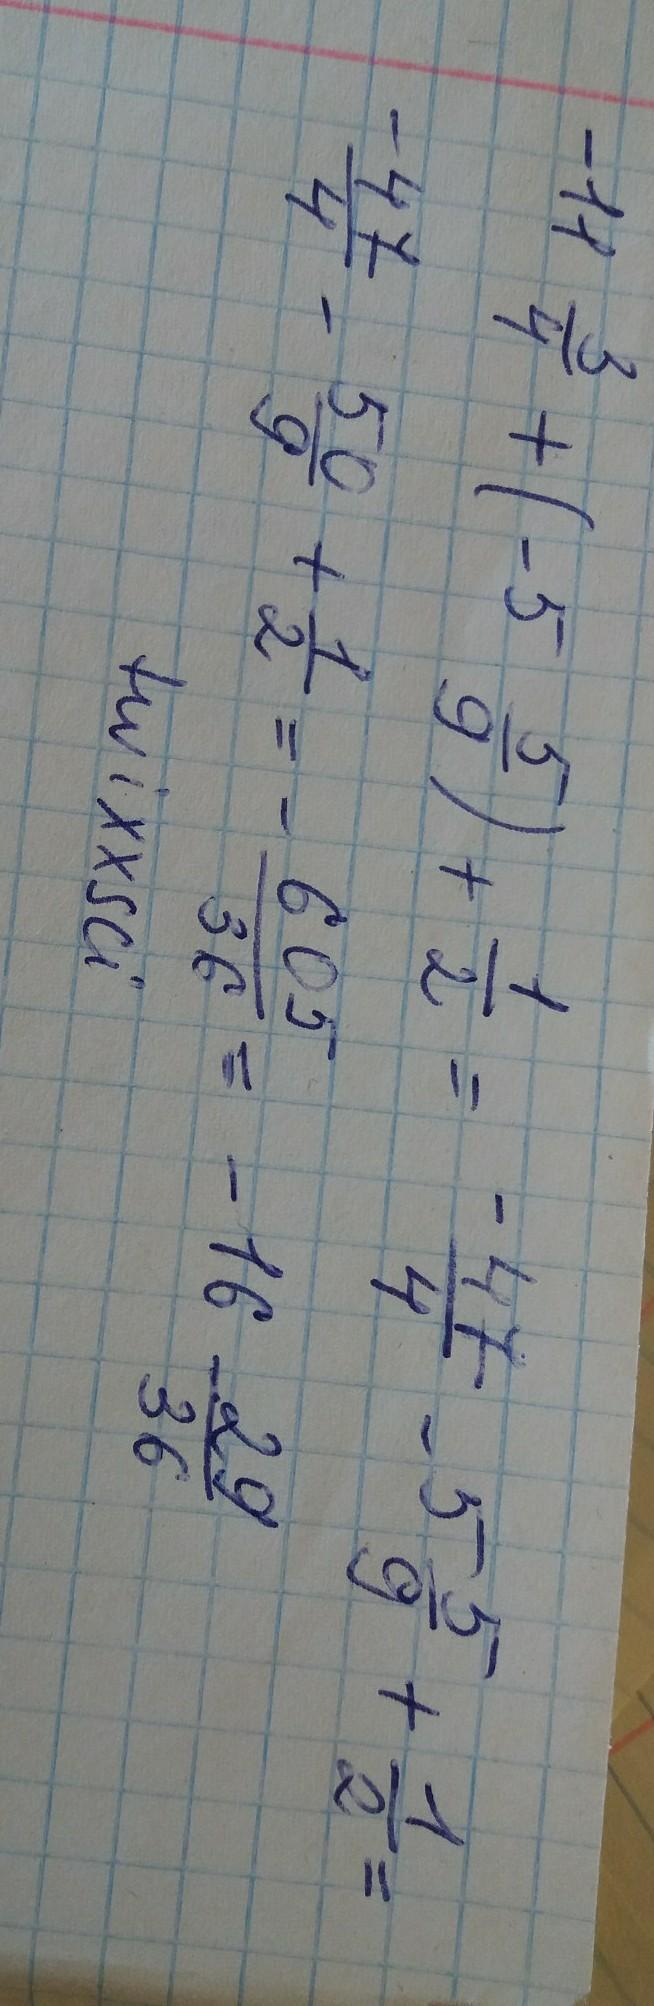 -11 3/4 + (-5 5/9) + 1/2 = -47/4 - 5 5/9 + 1/2 =
-47/4 - 50/9 + 1/2 = - 605/36 = -16 29/36
twixxsci